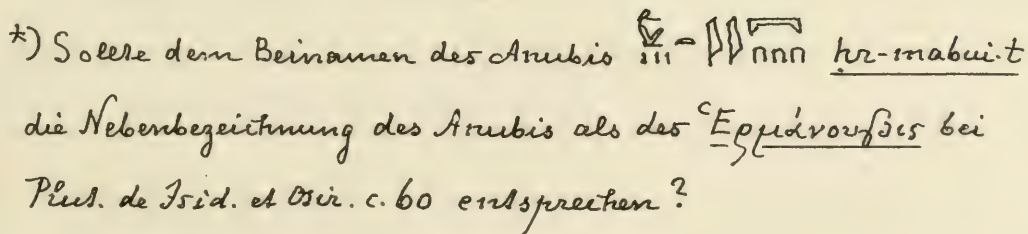 *) Sollte dem Beinamen des Anubis hr-mabui·t
die Nebenbezeichnung des Anubis als des Ἑρμάνουβις bei
Plut. de Isid. et Osir. c. 60 entsprechen?